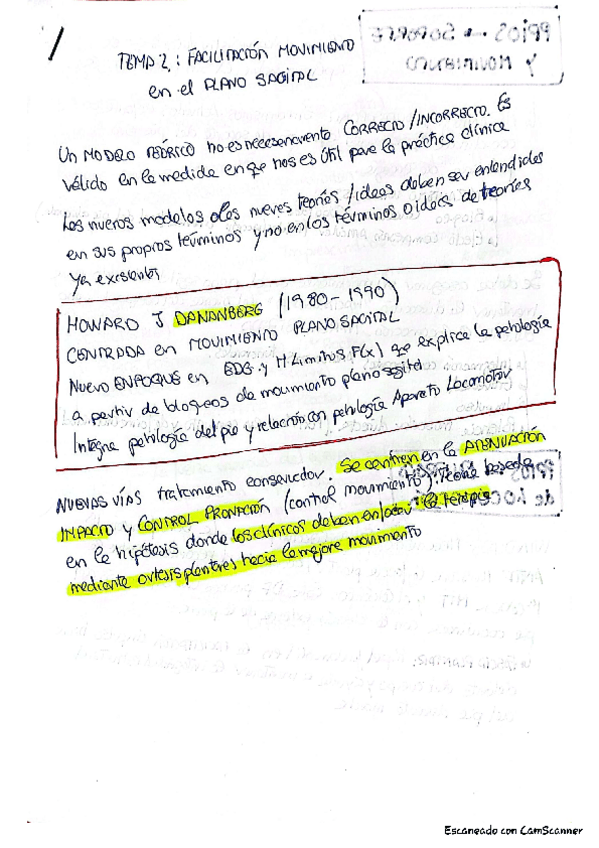 TEMA 2: FACILITACIÓN MOVIMIENTO
en el PLANO SAGITAL
Un MODELO TEÓRICO no es necesariamente CORRECTO/INCORRECTO. Es
válido en la medida en que nos es útil para la práctica clínica
Los nuevos modelos o las nuevas teorías/ideas deben ser entendidas
en sus propios términos y no en los términos o ideas de teorías
ya existentes
HOWARD J DANANBERG (1980-1990)
CENTRADA en MOVIMIENTO PLANO SAGITAL
NUEVO ENFOQUE en y H Limitus F(x) que explica la patología
a partir de bloqueos de movimiento plano sagital
Integra patología del pie y relación con patología Aparato Locomotor
NUEVAS VÍAS tratamiento conservador. Se centran en la ATENUACIÓN
IMPACTO y CONTROL PRONACIÓN (control movimiento). Teoría basada
en la hipótesis donde los clínicos deben enfocar la terapia
mediante ortesis plantares hacia la mejora movimiento
Escaneado con CamScanner